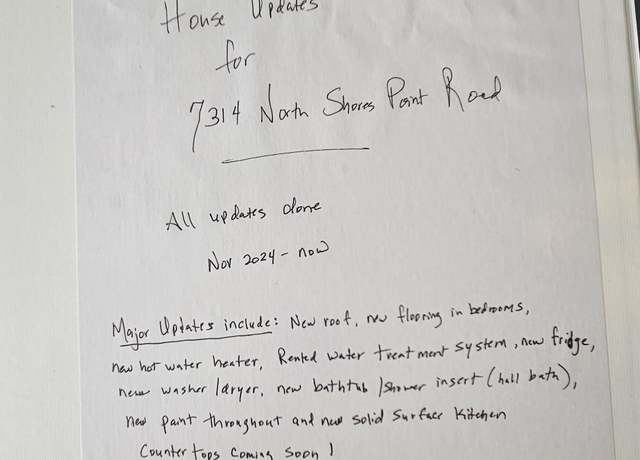 House Updates
for
7314 North Shores Point Road
All updates done
Nov 2024 - now
Major Updates include: New roof, new flooring in bedrooms,
new hot water heater, Rented water treatment system, new fridge,
new washer/dryer, new bathtub/shower insert (hall bath),
new paint throughout and new solid surface kitchen
Counter tops coming soon!